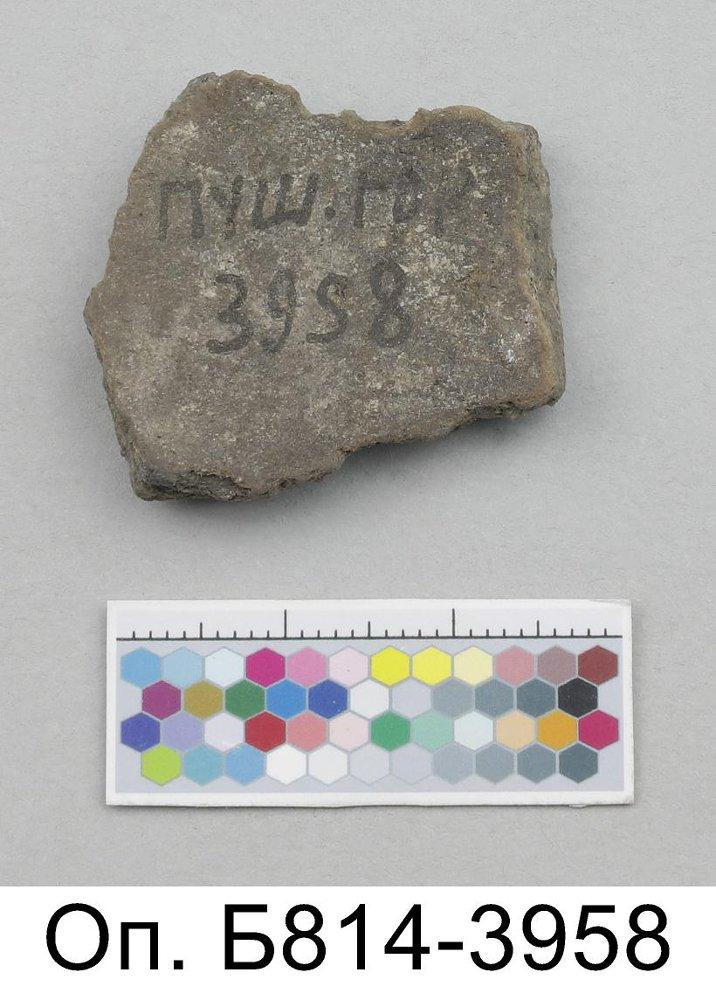 ПУШ.ГОР
3958
Оп. Б814-3958